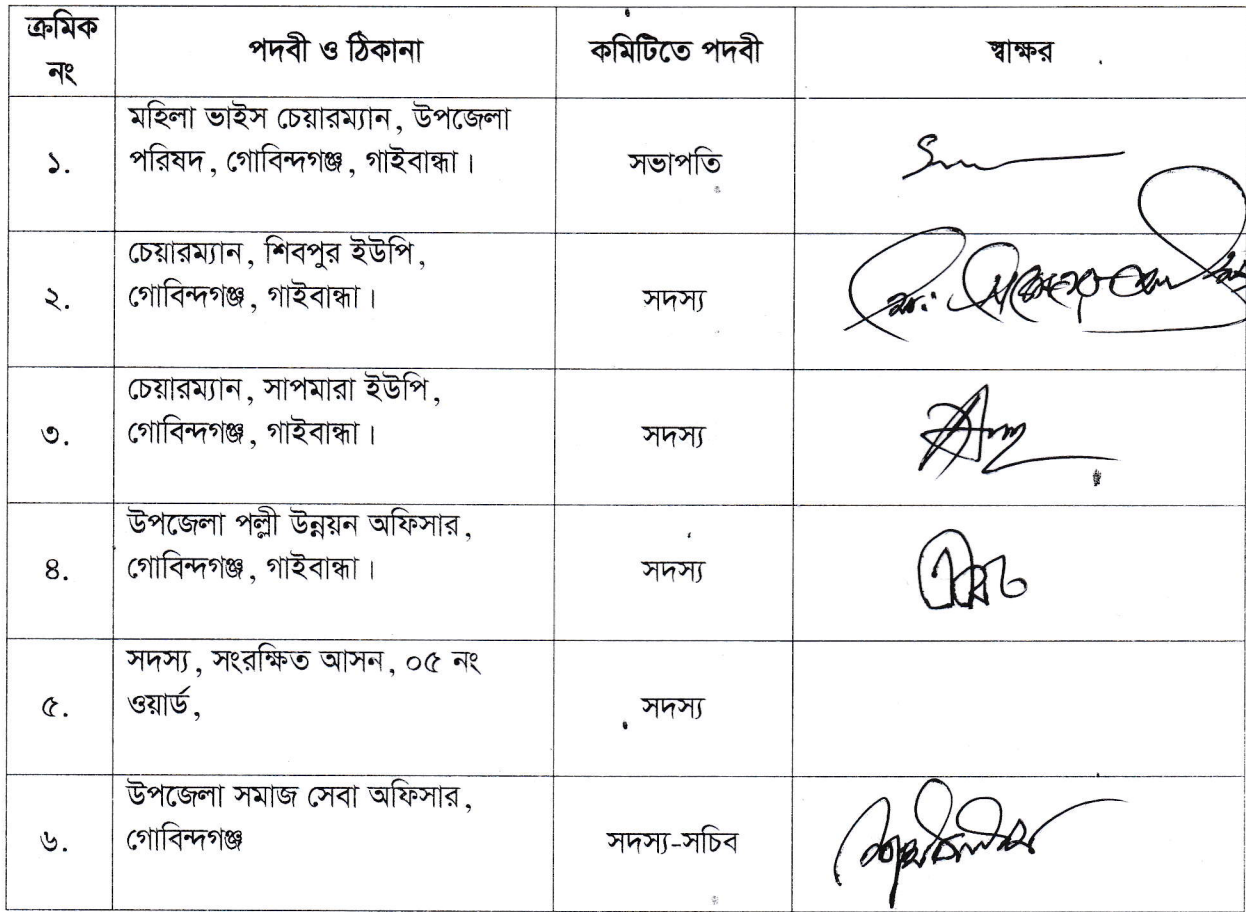 ক্রমিক নং পদবী ও ঠিকানা কমিটিতে পদবী স্বাক্ষর
মহিলা ভাইস চেয়ারম্যান, উপজেলা
১. পরিষদ, গোবিন্দগঞ্জ, গাইবান্ধা। সভাপতি
চেয়ারম্যান, শিবপুর ইউপি,
২. গোবিন্দগঞ্জ, গাইবান্ধা। সদস্য
চেয়ারম্যান, সাপমারা ইউপি,
৩. গোবিন্দগঞ্জ, গাইবান্ধা। সদস্য
উপজেলা পল্লী উন্নয়ন অফিসার,
৪. গোবিন্দগঞ্জ, গাইবান্ধা। সদস্য
সদস্য, সংরক্ষিত আসন, ০৫ নং
৫. ওয়ার্ড, সদস্য
উপজেলা সমাজ সেবা অফিসার,
৬. গোবিন্দগঞ্জ সদস্য-সচিব